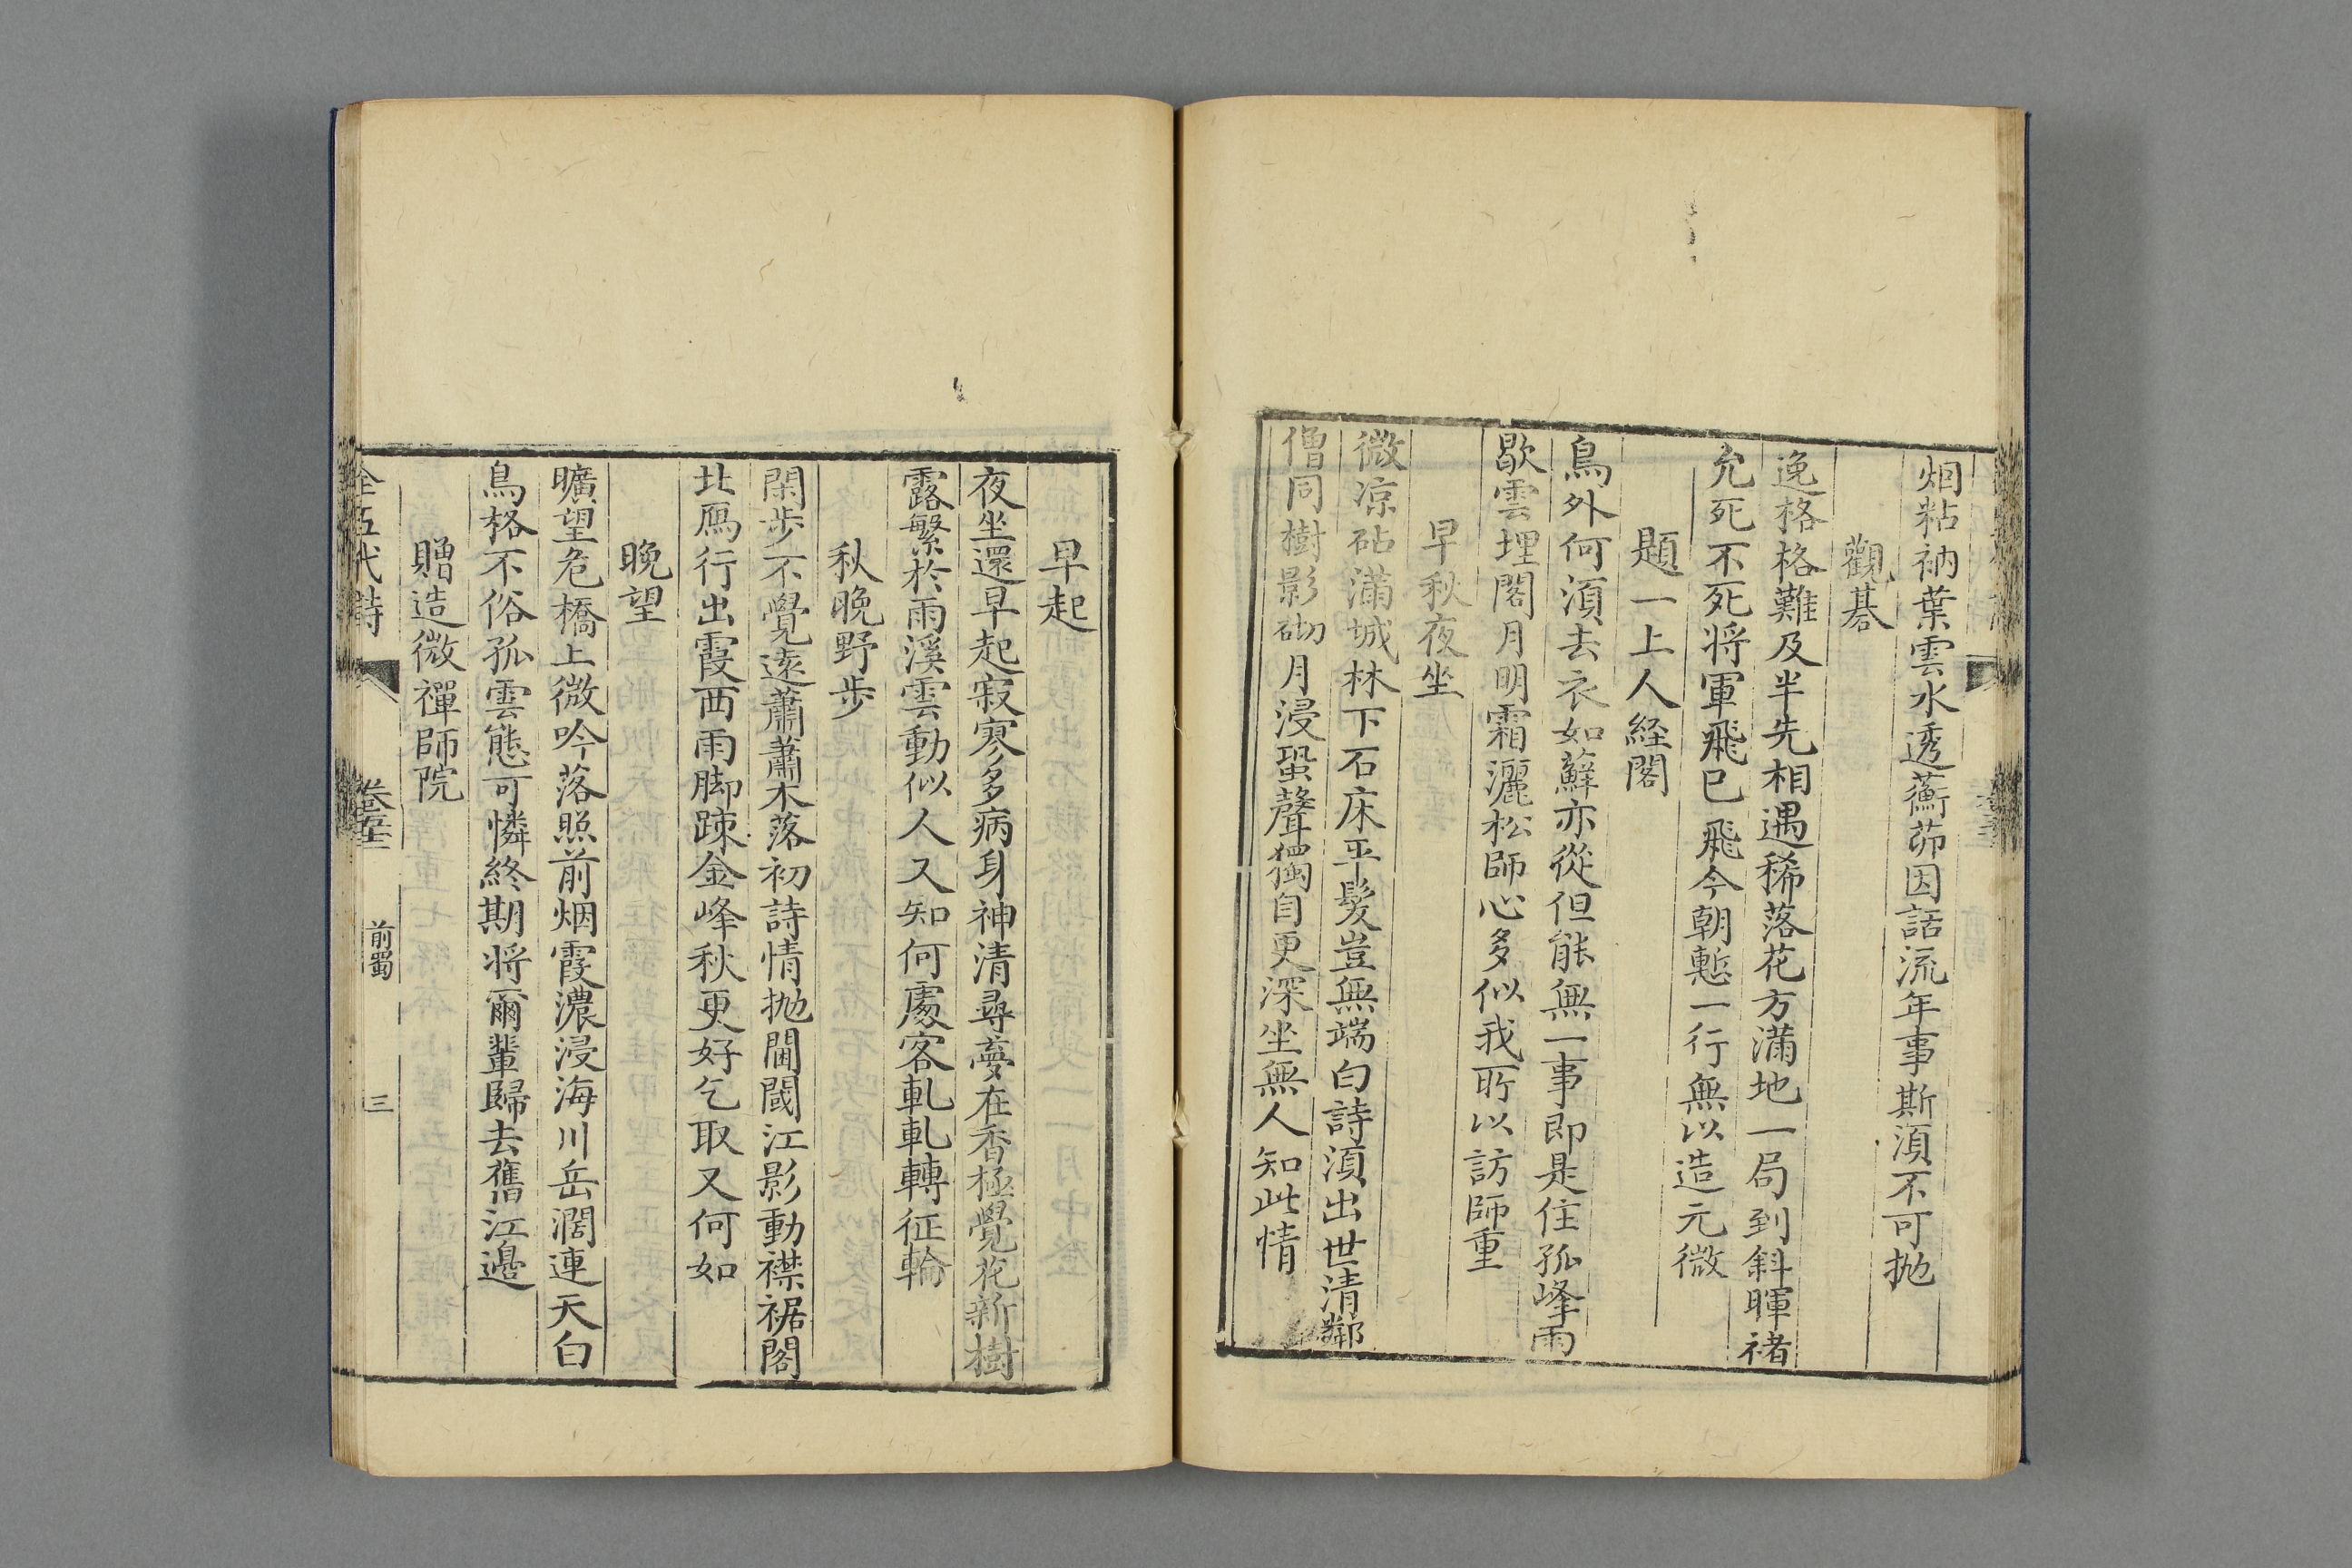 烟粘衲葉雲水透蘅茆因話流年事斯湏不可抛
觀棊
逸格格難及半先相遇稀落花方滿地一局到斜暉褚
允死不死将軍飛已飛今朝慙一行無以造元微
題一上人経閣
鳥外何湏去衣如蘚亦從但能無一事即是住孤峰雨
歇雲埋閣月明霜灑松師心多似我所以訪師重
早秋夜坐
微凉砧滿城林下石床平髮豈無端白詩湏出世清鄰
僧同樹影砌月浸蛩聲獨自更深坐無人知此情
早起
夜坐還早起寂寥多病身神清尋夢在香極覺花新樹
露繁於雨溪雲動似人又知何處客軋軋轉征輪
秋晚野步
閑步不覺遠蕭蕭木落初詩情抛闉闍江影動襟裾閣
北鴈行出霞西雨脚踈金峰秋更好乞取又何如
晚望
曠望危橋上微吟落照前烟霞濃浸海川岳濶連天白
鳥格不俗孤雲態可憐終期将爾輩歸去舊江邉
贈造微禪師院
全五代詩 前蜀 三